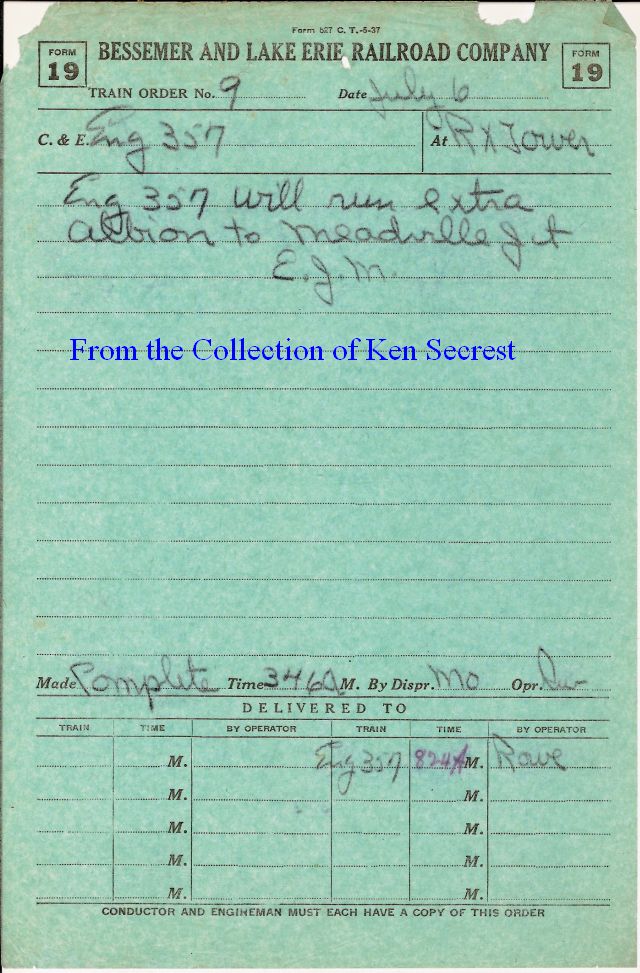 Form 527 C. T.-5-37
FORM 19
BESSEMER AND LAKE ERIE RAILROAD COMPANY
FORM 19
TRAIN ORDER No. 9 Date July 6
C. & E. Eng 357 At RX Tower
Eng 357 will run extra
Albion to Meadville Jct
E.J.M.
From the Collection of Ken Secrest
Made Complete Time 346 A M. By Dispr. MO Opr.
DELIVERED TO
TRAIN TIME BY OPERATOR TRAIN TIME BY OPERATOR
M. Eng 357 824A M. Rowe
M. M.
M. M.
M. M.
M. M.
CONDUCTOR AND ENGINEMAN MUST EACH HAVE A COPY OF THIS ORDER